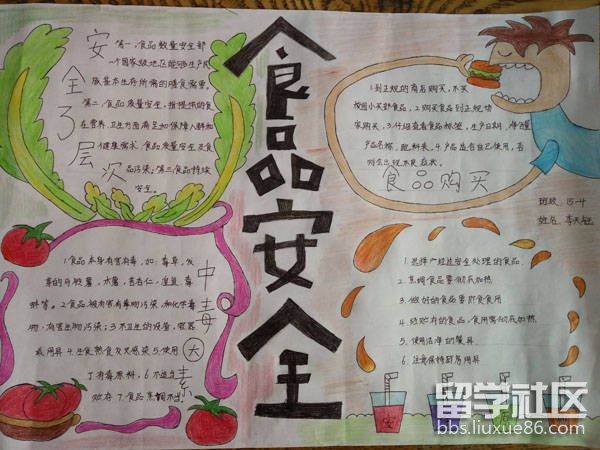 食品安全
安全了层次
第一:食品数量安全,即
一个国家或地区能够生产民
族基本生存所需的膳食需要。
第二:食品质量安全,指提供的食
在营养,卫生方面满足和保障人群的
健康需求,食品质量安全涉及食
品污染。第三:食品持续
安全。
1.到正规的商店购买,不买
校园小买部食品。2.购买食品到正规商
家购买。3.仔细查看食品标签,生产日期,净含量
产品名称,配料表。4.产品适合自己使用,否
则会出现不良症状。
食品购买
班级:15-4
姓名:李
中毒大素
1.食品本身有害有毒,如:毒草,发
芽的马铃薯,木薯,苦杏仁,
等。2.食品被有害有毒物污染,和化学毒
物,有害生物污染;3.不卫生的设备,容器
或用具 4.生熟食交叉感染 5.使用
了有毒原料,6.不适当
贮存 7.食品烹调不当
1.选择产经过安全处理的食品
2.烹调食品要彻底加热
3.做好的食品要即食食用
4.经贮存的食品,食用需彻底加热
5.使用洁净的餐具
6.注意保持厨房用具
安
留学社区
bbs.liuxue86.com